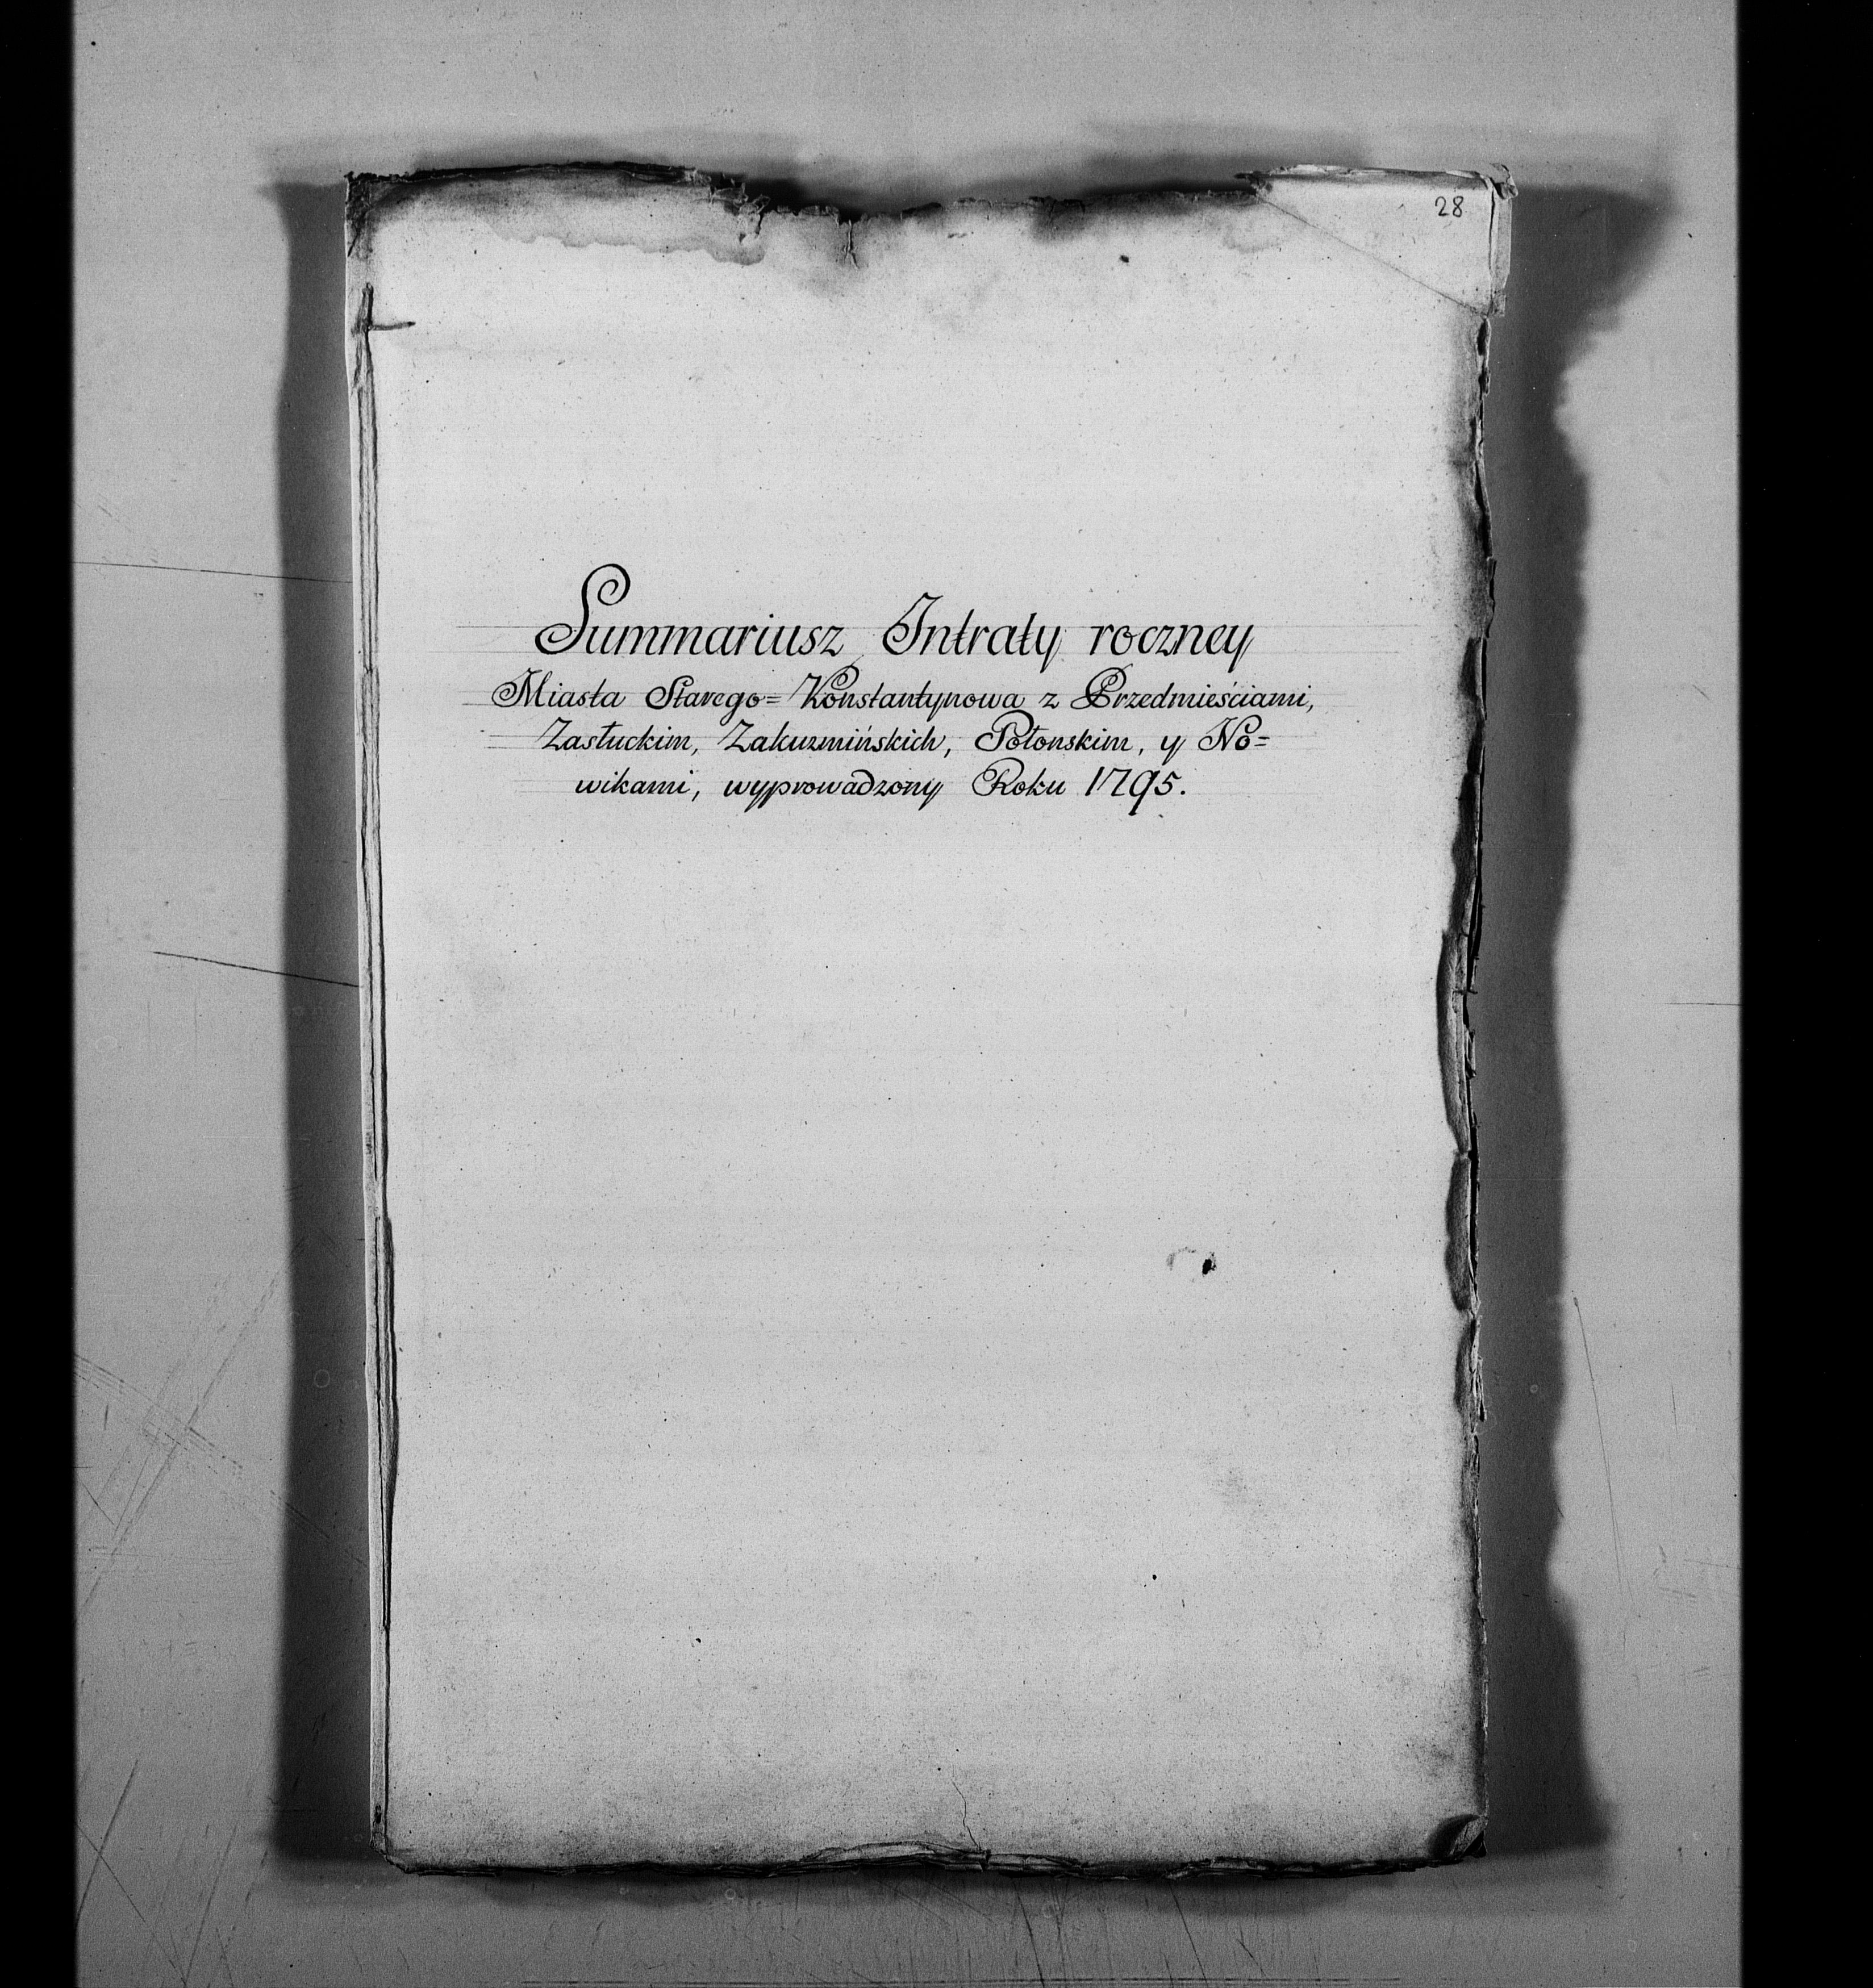 28
Summariusz Intraty roczney
Miasta Starego= Konstantynowa z Przedmieściami,
Zasłuckim, Zakuzmińskich, Połonskim, y No=
wikami, wyprowadzony Roku 1795.